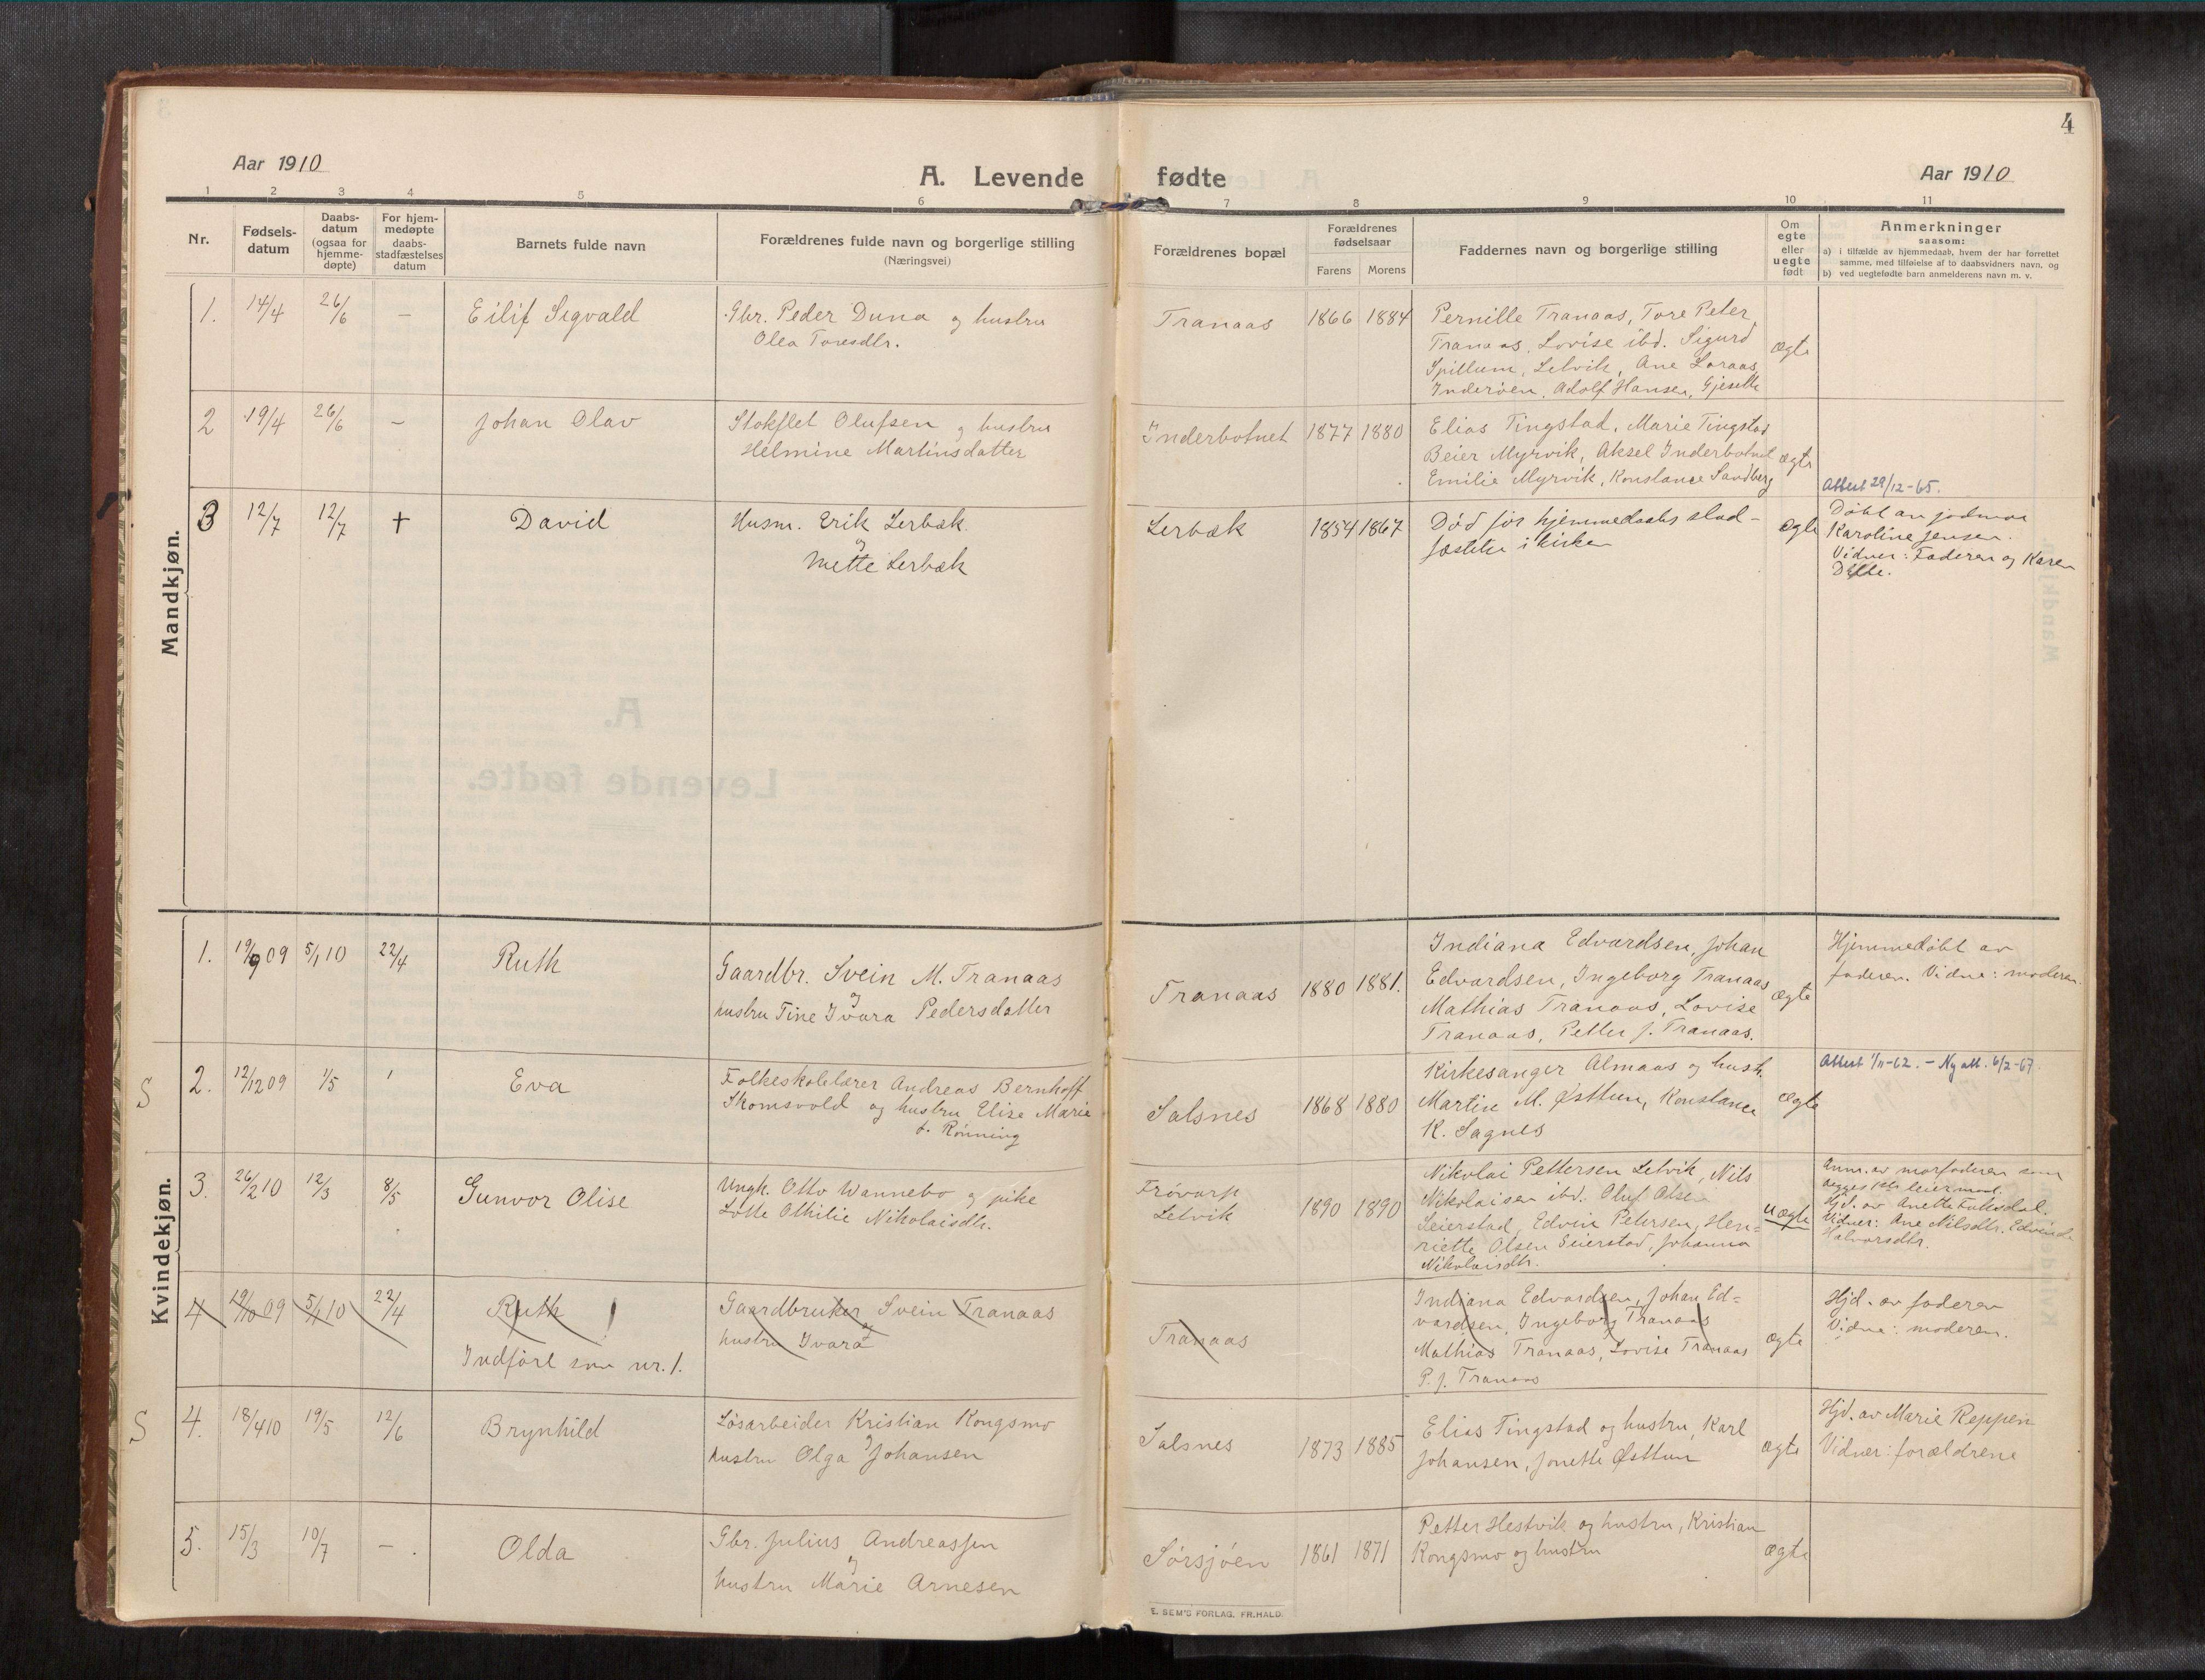 4
Aar 1910
A. Levende fødte
Aar 1910
1 2 3 4 5 6 7 8 9 10 11
Nr.
Fødsels-
datum
Daabs-
datum
(ogsaa for
hjemme-
døpte)
For hjem-
medøpte
daabs-
stadfæstelses
datum
Barnets fulde navn
Forældrenes fulde navn og borgerlige stilling
(Næringsvei)
Forældrenes bopæl
Forældrenes
fødselsaar
Farens Morens
Faddernes navn og borgerlige stilling
Om
egte
eller
uegte
født
Anmerkninger
saasom:
a) i tilfælde av hjemmedaab, hvem der har forrettet
samme, med tilføielse af to daabsvidners navn, og
b) ved uegtefødte barn anmelderens navn m. v.
Mandkjøn.
1. 14/4 26/6 – Eilif Sigvald
Gbr. Peder Duna og hustru
Olea Toresdtr.
Tranaas 1866 1884
Pernille Tranaas, Tore Peter
Tranaas, Lovise ibd. Sigurd
Spillum, Letvik, Ane Loraas,
Inderøen, Adolf Hansen, Gjeselle
ægte
2 19/4 26/6 – Johan Olav
Stokflet Olufsen og hustru
Helmine Martinsdatter
Inderbotnet 1877 1880
Elias Tingstad, Marie Tingstad
Beier Myrvik, Aksel Inderbotnet
Emilie Myrvik, Konstance Sandberg
ægte
Attest 29/12-65.
3 12/7 12/7 + David
Husm. Erik Lerbæk
og
Mette Lerbæk
Lerbæk 1854 1867
Død før hjemmedaabs stad-
fæstelse i kirken
ægte
Døbt av jodmor
Karoline Jensen.
Vidner: Faderen og Karen
Kvindekjøn.
1. 19/9 09 5/1 10 22/4 Ruth
Gaardbr. Svein M. Tranaas
og
hustru Tine Ivara Pedersdatter
Tranaas 1880 1881.
Indiana Edvardsen, Johan
Edvardsen, Ingeborg Tranaas
Mathias Tranaas, Lovise
Tranaas, Petter J. Tranaas.
ægte
Hjemmedøbt av
faderen. Vidne: moderen.
S 2. 12/12 09 1/5 Eva
Folkeskolelærer Andreas Bernhoff
Skomsvold og hustru Elise Marie
f. Rønning
Salsnes 1868 1880
Kirkesanger Almaas og hustr.
Martin M. Østtun, Konstance
K. Sagnes
ægte
Attest 1/11-62. – Ny att. 6/2-67.
3. 26/2 10 12/3 8/5 Gunvor Olise
Ungk. Otto Wannebo og pike
Lotte Othilie Nikolaisdtr.
Letvik 1890 1890
Nikolai Pettersen Letvik, Nils
Nikolaisen ibd. Oluf Olsen
Seierstad, Edvin Petersen, Hen-
riette Olsen Seierstad, Johanna
Nikolaisdtr.
uægte
Anm. av morfaderen som
begges 1ste leiermaal.
Hjd. av Anette Fuksdal.
Vidner: Ane Nilsdtr. Edvinde
Halvorsdtr.
4 19/10 09 5/1 10 22/4 Ruth
Indført som nr. 1.
Gaardbruker Svein Tranaas
og
hustru Ivara
Tranaas
Indiana Edvardsen, Johan Ed-
vardsen, Ingeborg Tranaas
Mathias Tranaas, Lovise Tranaas
P. J. Tranaas
ægte
Hjd. av faderen
Vidne: moderen.
S 4. 18/4 10 19/5 12/6 Brynhild
Løsarbeider Kristian Kongsmo
og
hustru Olga Johansen
Salsnes 1873 1885
Elias Tingstad og hustru, Karl
Johansen, Jonette Østtun
ægte
Hjd. av Marie Reppen
Vidner: forældrene
5. 15/3 10/7 – Olda
Gbr. Julius Andreassen
og
hustru Marie Arnesen
Sørsjøen 1861 1871
Petter Hestvik og hustru, Kristian
Kongsmo og hustru
ægte
E. SEM'S FORLAG, FR.HALD.